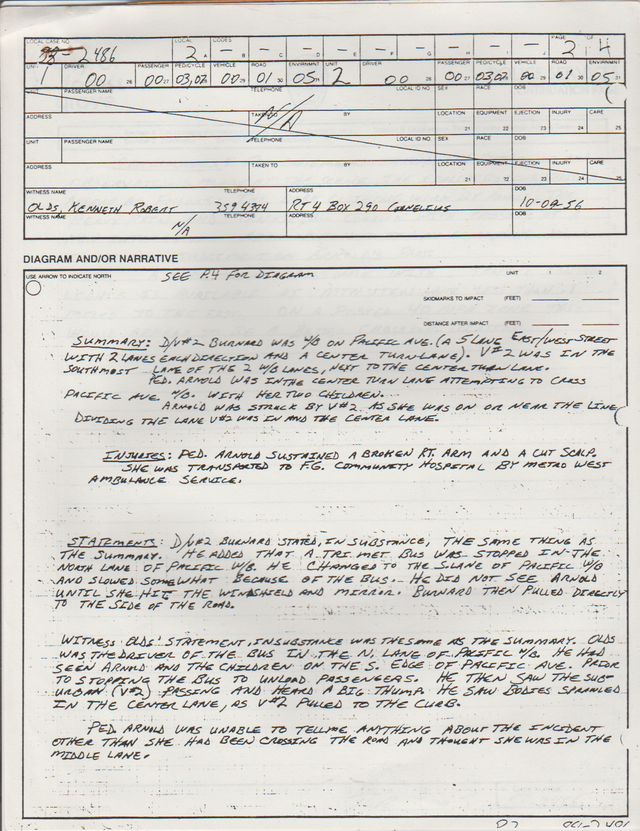 LOCAL CASE NO LOCAL CODES PAGE OF
2486 2 A – B – C – D – E – F – G – H – I – J – 2 4
UNIT DRIVER PASSENGER PED/CYCLE VEHICLE ROAD ENVIRNMT UNIT DRIVER PASSENGER PED/CYCLE VEHICLE ROAD ENVIRNMT
1 00 26 00 27 03,02 28 00 29 01 30 05 31 2 00 26 00 27 03,02 28 00 29 01 30 05 31
UNIT PASSENGER NAME TELEPHONE LOCAL ID NO SEX RACE DOB
N/A
ADDRESS TAKEN TO BY LOCATION EQUIPMENT EJECTION INJURY CARE
21 22 23 24 25
UNIT PASSENGER NAME TELEPHONE LOCAL ID NO SEX RACE DOB
ADDRESS TAKEN TO BY LOCATION EQUIPMENT EJECTION INJURY CARE
21 22 23 24 25
WITNESS NAME TELEPHONE ADDRESS DOB
OLDS, KENNETH ROBERT RT 4 BOX 290 CORNELIUS 10-09-56
WITNESS NAME TELEPHONE ADDRESS DOB
N/A
DIAGRAM AND/OR NARRATIVE
USE ARROW TO INDICATE NORTH SEE P.4 FOR DIAGRAM UNIT 1 2
SKIDMARKS TO IMPACT (FEET)
DISTANCE AFTER IMPACT (FEET)
SUMMARY: D/V#2 BURNARD WAS W/B ON PACIFIC AVE. (A 5 LANE EAST/WEST STREET
WITH 2 LANES EACH DIRECTION AND A CENTER TURN LANE). V#2 WAS IN THE
SOUTHMOST LANE OF THE 2 W/B LANES, NEXT TO THE CENTER TURN LANE.
PED. ARNOLD WAS IN THE CENTER TURN LANE ATTEMPTING TO CROSS
PACIFIC AVE N/B. WITH HER TWO CHILDREN.
ARNOLD WAS STRUCK BY V#2 AS SHE WAS ON OR NEAR THE LINE
DIVIDING THE LANE V#2 WAS IN AND THE CENTER LANE.
INJURIES: PED. ARNOLD SUSTAINED A BROKEN RT. ARM AND A CUT SCALP.
SHE WAS TRANSPORTED TO F.G. COMMUNITY HOSPITAL BY METRO WEST
AMBULANCE SERVICE.
STATEMENTS: D/V#2 BURNARD STATED, IN SUBSTANCE, THE SAME THING AS
THE SUMMARY. HE ADDED THAT A TRI MET BUS WAS STOPPED IN THE
NORTH LANE OF PACIFIC W/B. HE CHANGED TO THE S LANE OF PACIFIC W/B
AND SLOWED SOMEWHAT BECAUSE OF THE BUS. HE DID NOT SEE ARNOLD
UNTIL SHE HIT THE WINDSHIELD AND MIRROR. BURNARD THEN PULLED DIRECTLY
TO THE SIDE OF THE ROAD.
WITNESS OLDS' STATEMENT, IN SUBSTANCE WAS THE SAME AS THE SUMMARY. OLDS
WAS THE DRIVER OF THE BUS IN THE N. LANE OF PACIFIC W/B. HE HAD
SEEN ARNOLD AND THE CHILDREN ON THE S. EDGE OF PACIFIC AVE. PRIOR
TO STOPPING THE BUS TO UNLOAD PASSENGERS. HE THEN SAW THE SUB-
URBAN (V#2) PASSING AND HEARD A BIG THUMP. HE SAW BODIES SPRAWLED
IN THE CENTER LANE, AS V#2 PULLED TO THE CURB.
PED ARNOLD WAS UNABLE TO TELL ME ANYTHING ABOUT THE INCIDENT
OTHER THAN SHE HAD BEEN CROSSING THE ROAD AND THOUGHT SHE WAS IN THE
MIDDLE LANE.